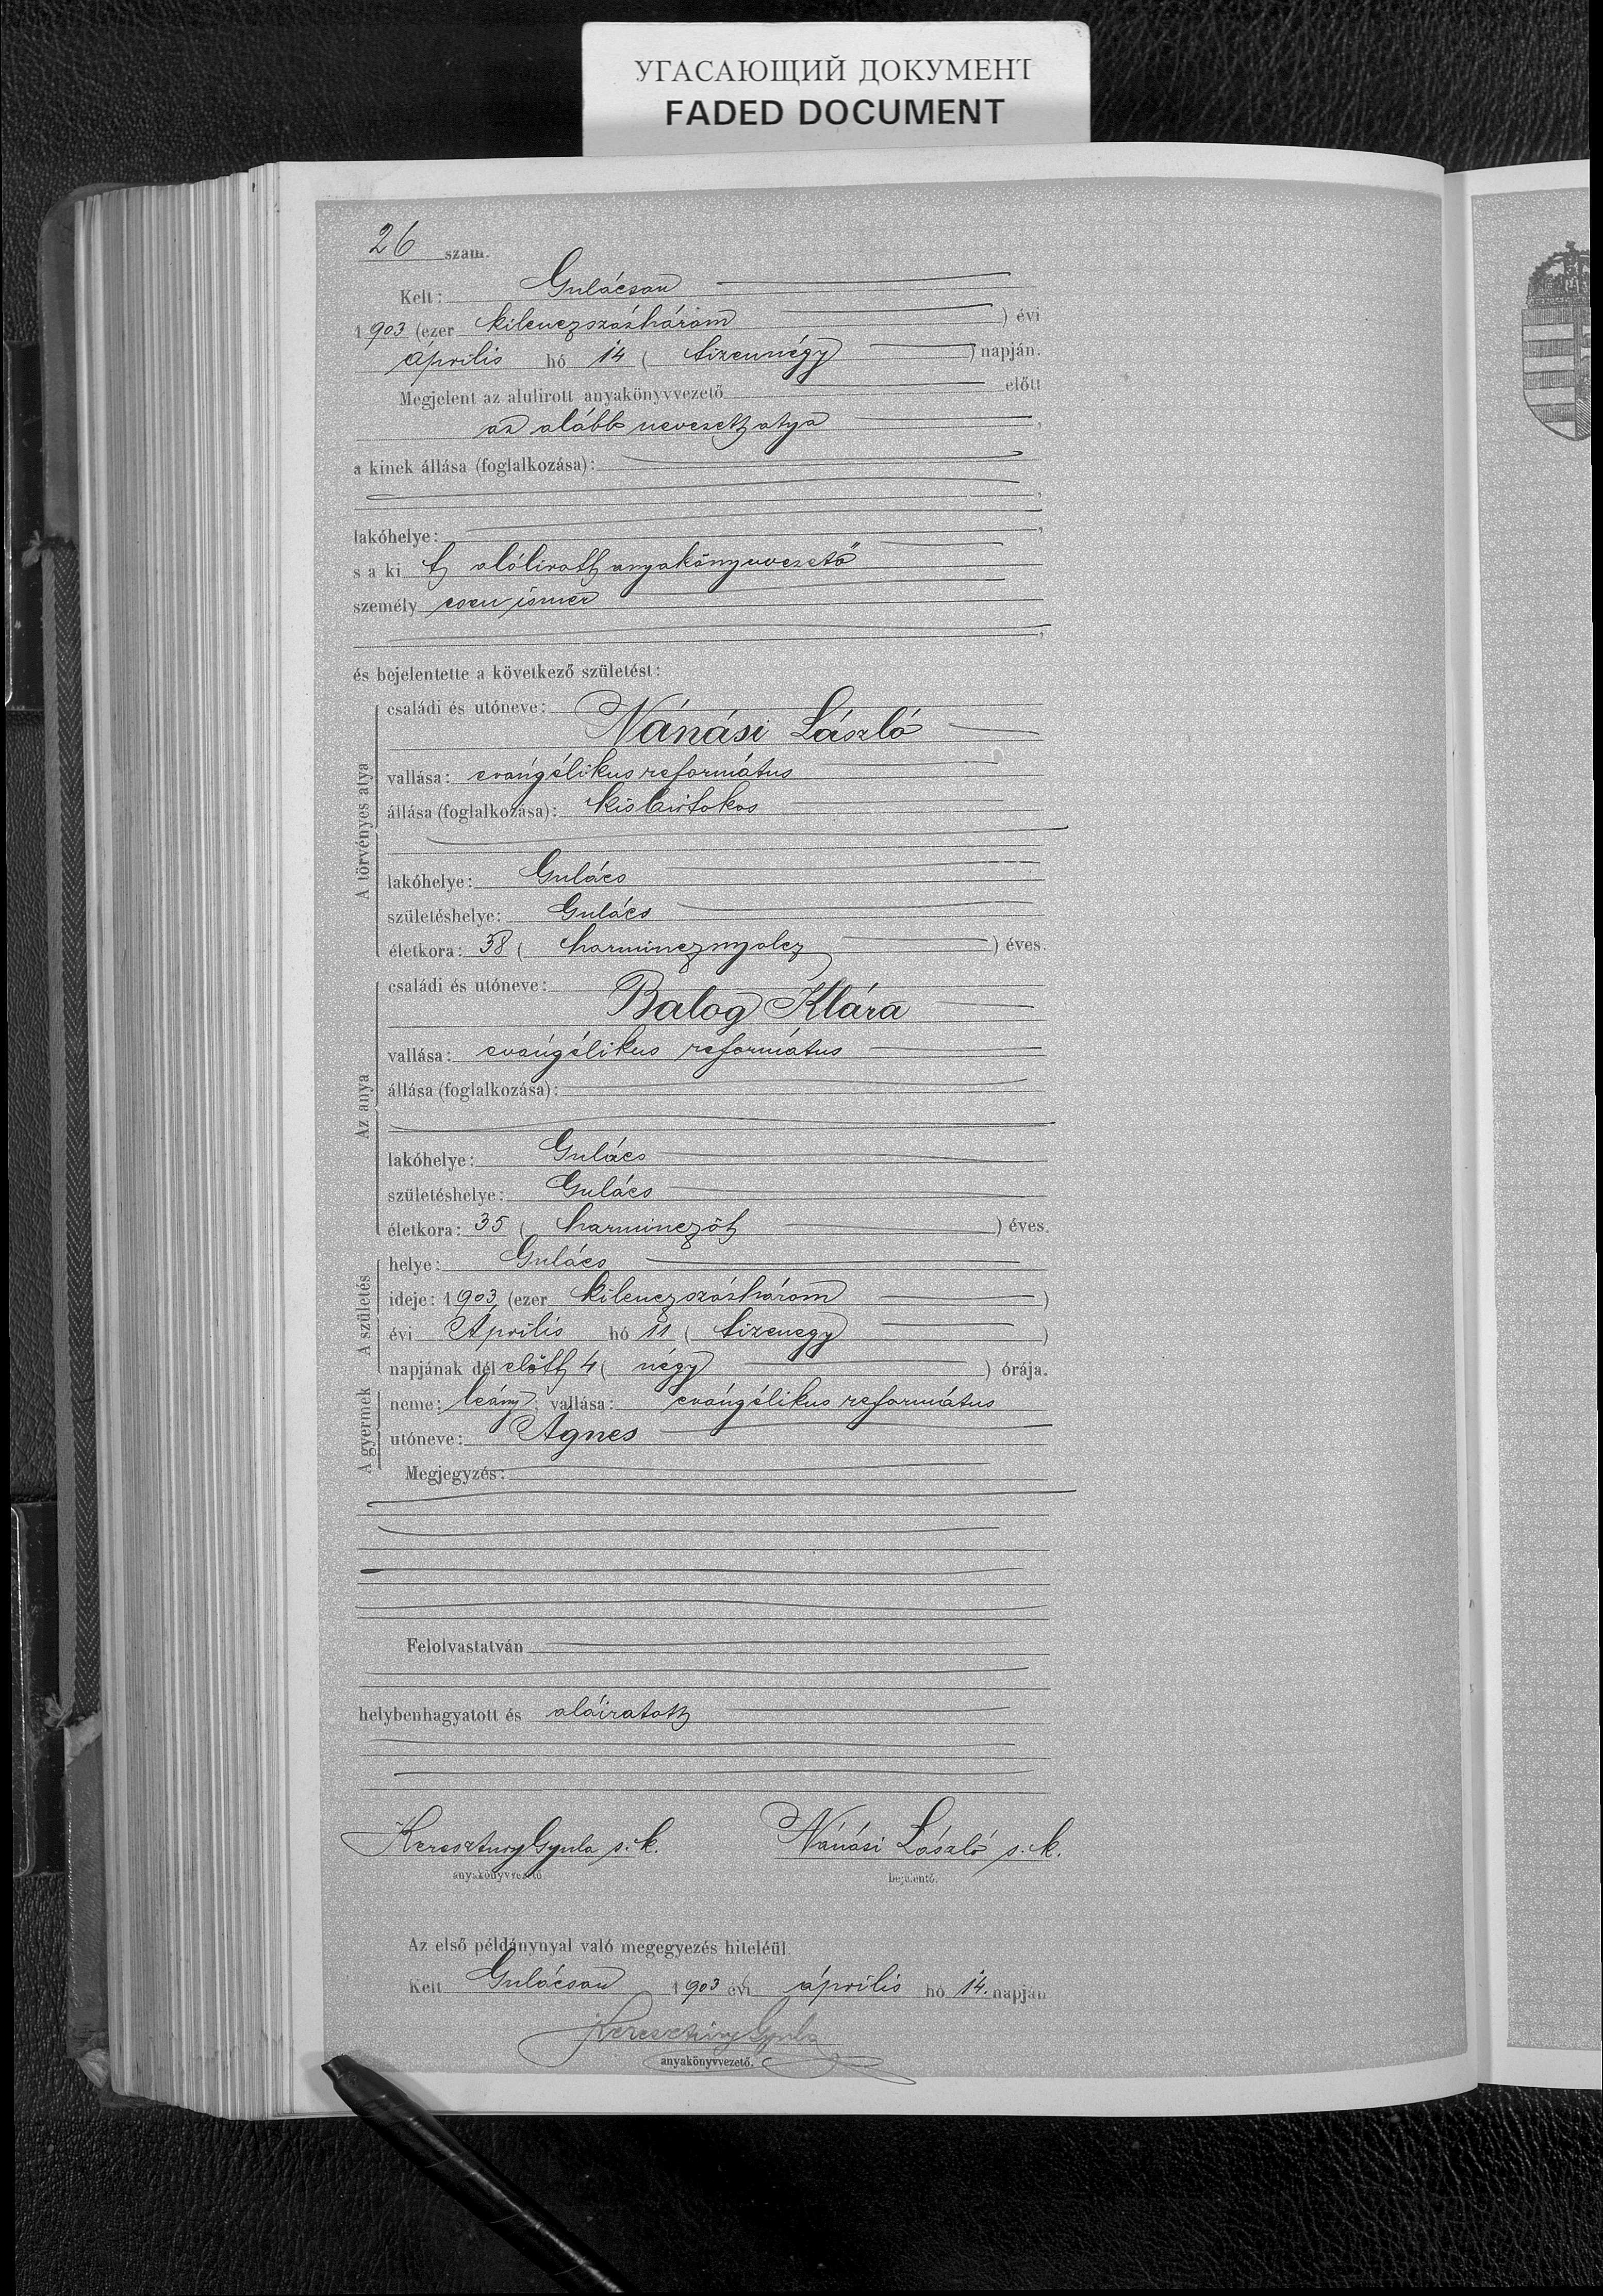 УГАСАЮЩИЙ ДОКУМЕНТ
FADED DOCUMENT
26 szám.
Kelt: Gulácson
1903 (ezer kilenczszázhárom) évi
április hó 14 (tizennégy) napján.
Megjelent az alulirott anyakönyvvezető előtt
az alább nevezett atya,
a kinek állása (foglalkozása):
,
lakóhelye: ,
s a ki t alólirott anyakönyvvezető
személyesen ismer
,
és bejelentette a következő születést:
A törvényes atya
családi és utóneve:
Nánási László
vallása: evángélikus református
állása (foglalkozása): kisbirtokos
lakóhelye: Gulács
születéshelye: Gulács
életkora: 38 (harmincznyolcz) éves.
Az anya
családi és utóneve:
Balog Klára
vallása: evángélikus református
állása (foglalkozása):
lakóhelye: Gulács
születéshelye: Gulács
életkora: 35 (harminczöt) éves.
A születés
helye: Gulács
ideje: 1903, (ezer kilenczszázhárom)
évi Április hó 11 (tizenegy)
napjának dél előtt 4 (négy) órája.
A gyermek
neme: leány; vallása: evángélikus református
utóneve: Ágnes
Megjegyzés:
Felolvastatván
helybenhagyatott és aláiratott
Keresztury Gyula s. k. Nánási László s. k.
anyakönyvvezető. bejelentő.
Az első példánynyal való megegyezés hiteléül
Kelt Gulácson 1903 évi április hó 14. napján
Keresztury Gyula
anyakönyvvezető.